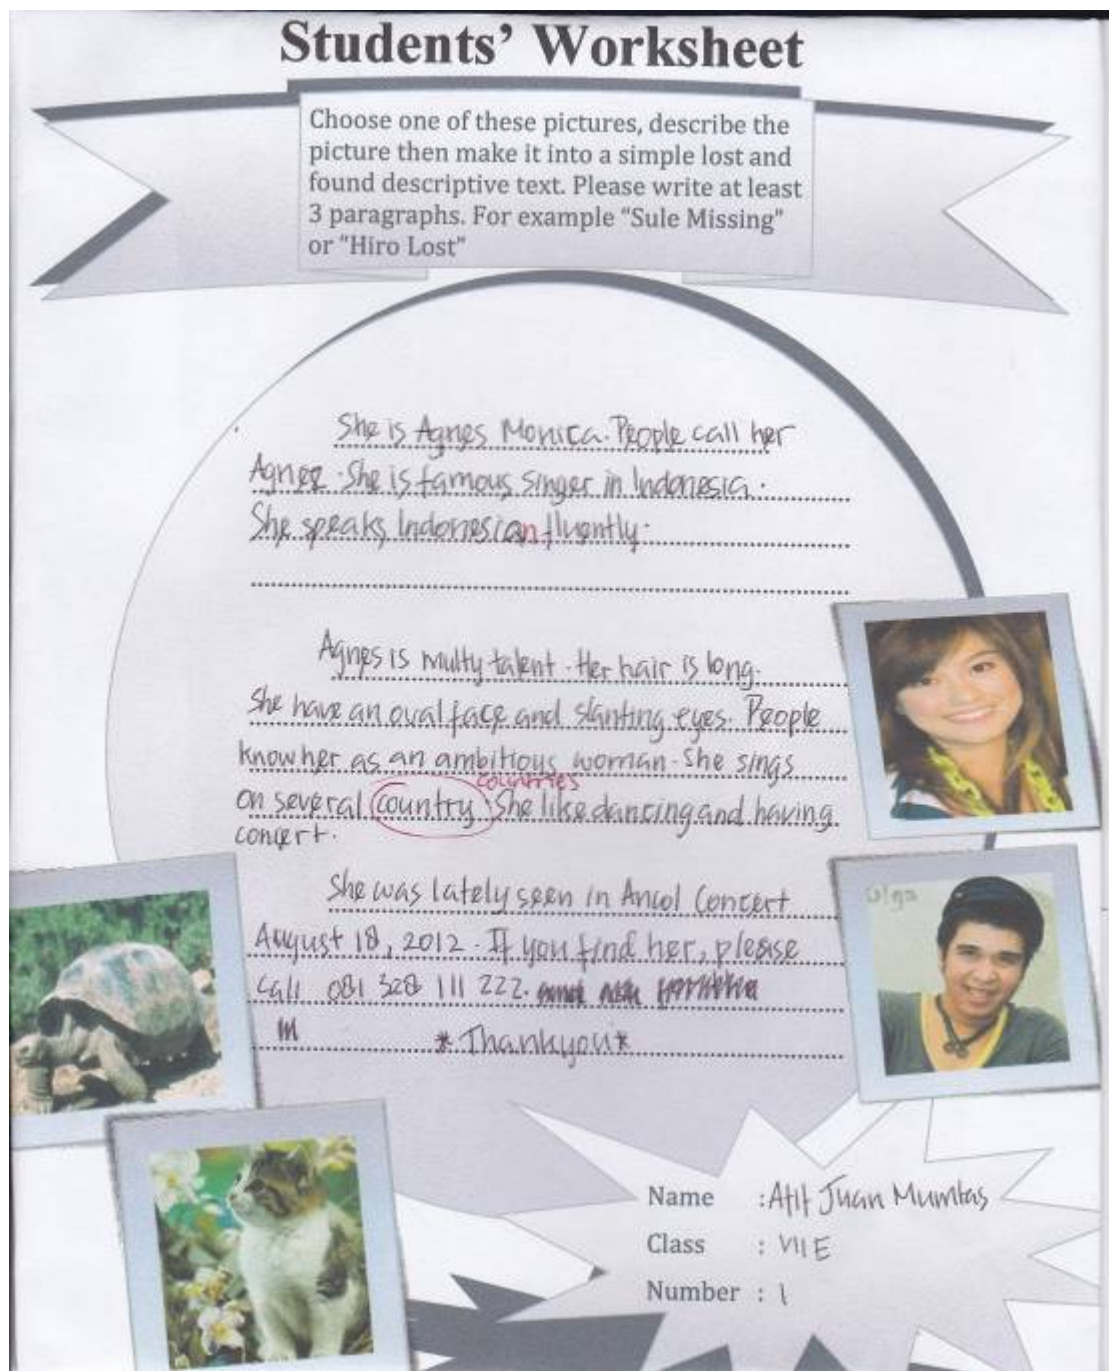 Students' Worksheet
Choose one of these pictures, describe the
picture then make it into a simple lost and
found descriptive text. Please write at least
3 paragraphs. For example “Sule Missing”
or “Hiro Lost”
She is Agnes Monica. People call her
Agnes. She is famous singer in Indonesia.
She speaks Indonesian fluently.
Agnes is multy talent. Her hair is long.
She have an oval face and slanting eyes. People
know her as an ambitious woman. She sings
countries
on several country. She like dancing and having
concert.
She was lately seen in Ancol Concert
August 18, 2012. If you find her, please
call 081 328 111 222.
*Thankyou*
Olga
Name : Atit Juan Mumtas
Class : VII E
Number : 1